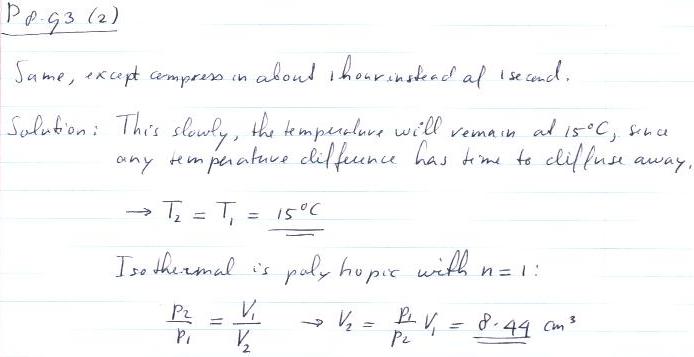 P8.93 (2)
Same, except compress in about 1 hour instead of 1 second.
Solution: This slowly, the temperature will remain at 15°C, since
any temperature difference has time to diffuse away.
→ T₂ = T₁ = 15°C
Isothermal is polytropic with n = 1:
p₂/p₁ = V₁/V₂ → V₂ = p₁/p₂ V₁ = 8.44 cm³